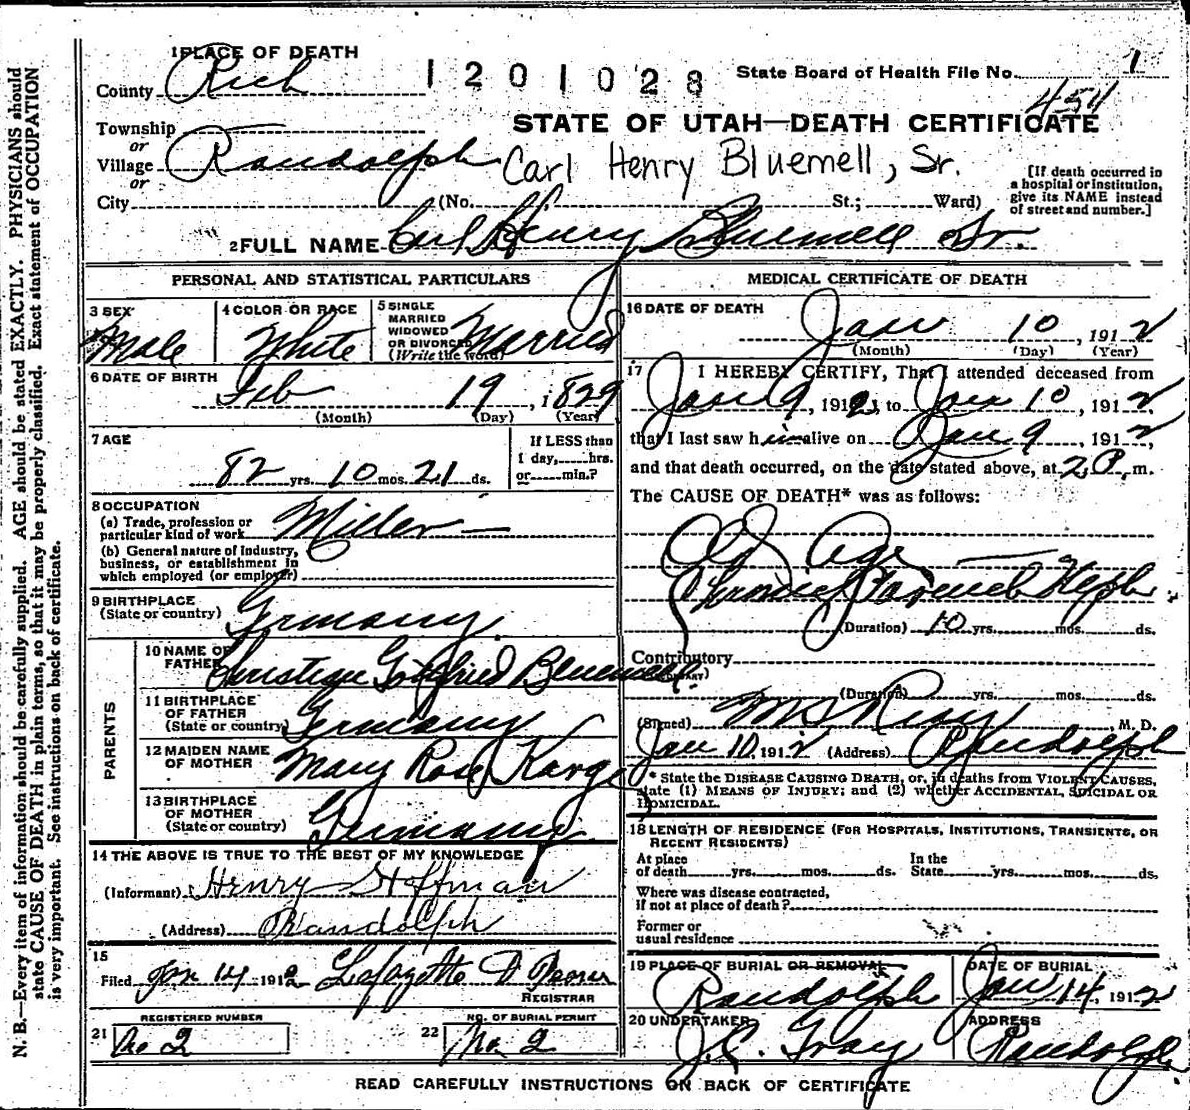 1 PLACE OF DEATH
County Rich
1201028
State Board of Health File No. 1
454
Township
or
Village Randolph
or
City (No. St.; Ward)
STATE OF UTAH—DEATH CERTIFICATE
Carl Henry Bluemell, Sr.
[If death occurred in
a hospital or institution,
give its NAME instead
of street and number.]
2 FULL NAME Carl Henry Bluemell Sr.
PERSONAL AND STATISTICAL PARTICULARS
3 SEX Male
4 COLOR OR RACE White
5 SINGLE
MARRIED
WIDOWED
OR DIVORCED
(Write the word) Married
6 DATE OF BIRTH Feb 19, 1829
(Month) (Day) (Year)
7 AGE
82 yrs. 10 mos. 21 ds.
If LESS than
1 day,......hrs.
or......min.?
8 OCCUPATION
(a) Trade, profession or
particular kind of work Miller
(b) General nature of industry,
business, or establishment in
which employed (or employer)
9 BIRTHPLACE
(State or country) Germany
PARENTS
10 NAME OF
FATHER Christian Gottfried Bluemell
11 BIRTHPLACE
OF FATHER
(State or country) Germany
12 MAIDEN NAME
OF MOTHER Mary Rose Karge
13 BIRTHPLACE
OF MOTHER
(State or country) Germany
14 THE ABOVE IS TRUE TO THE BEST OF MY KNOWLEDGE
(Informant) Henry Hoffman
(Address) Randolph
15
Filed Jan 14 1912 Lafayette
REGISTRAR
REGISTERED NUMBER
21 No 2
NO. OF BURIAL PERMIT
22 No. 2
MEDICAL CERTIFICATE OF DEATH
16 DATE OF DEATH Jan 10, 1912
(Month) (Day) (Year)
17 I HEREBY CERTIFY, That I attended deceased from
Jan 9, 1912, to Jan 10, 1912
that I last saw him alive on Jan 9, 1912,
and that death occurred, on the date stated above, at 2 P. m.
The CAUSE OF DEATH* was as follows:
Old Age
Chronic
(Duration) 10 yrs. mos. ds.
Contributory
(Duration) yrs. mos. ds.
(Signed) M. D.
Jan 10, 1912 (Address) Randolph
* State the DISEASE CAUSING DEATH, or, in deaths from VIOLENT CAUSES,
state (1) MEANS OF INJURY; and (2) whether ACCIDENTAL, SUICIDAL OR
HOMICIDAL.
18 LENGTH OF RESIDENCE (FOR HOSPITALS, INSTITUTIONS, TRANSIENTS, OR
RECENT RESIDENTS)
At place
of death......yrs.......mos.......ds.
In the
State......yrs.......mos.......ds.
Where was disease contracted,
If not at place of death?
Former or
usual residence
19 PLACE OF BURIAL OR REMOVAL
Randolph
DATE OF BURIAL
Jan 14, 1912
20 UNDERTAKER
J.C. Gray
ADDRESS
Randolph
READ CAREFULLY INSTRUCTIONS ON BACK OF CERTIFICATE
N. B.—Every item of information should be carefully supplied. AGE should be stated EXACTLY. PHYSICIANS should
state CAUSE OF DEATH in plain terms, so that it may be properly classified. Exact statement of OCCUPATION
is very important. See instructions on back of certificate.